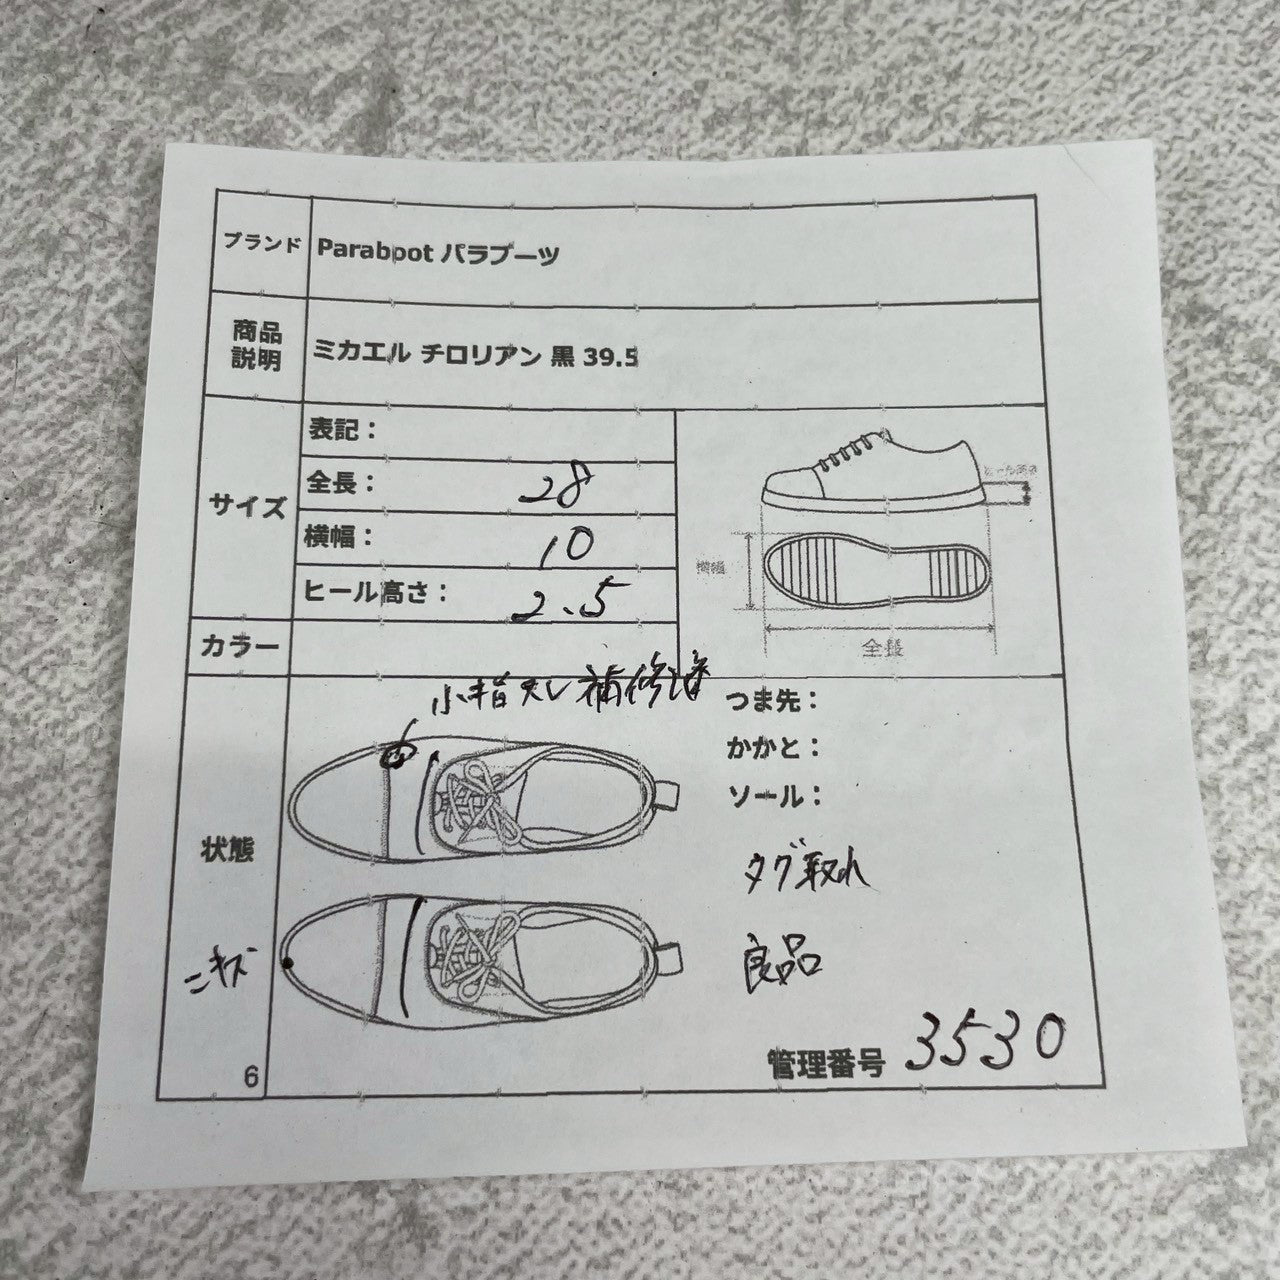 ブランド Paraboot パラブーツ
商品説明 ミカエル チロリアン 黒 39.5
サイズ
表記：
全長： 28
横幅： 10
ヒール高さ： 2.5
ヒール高さ
横幅
全長
カラー
小指スレ補修済
つま先：
かかと：
ソール：
状態
タグ取れ
キズ
良品
管理番号 3530
6